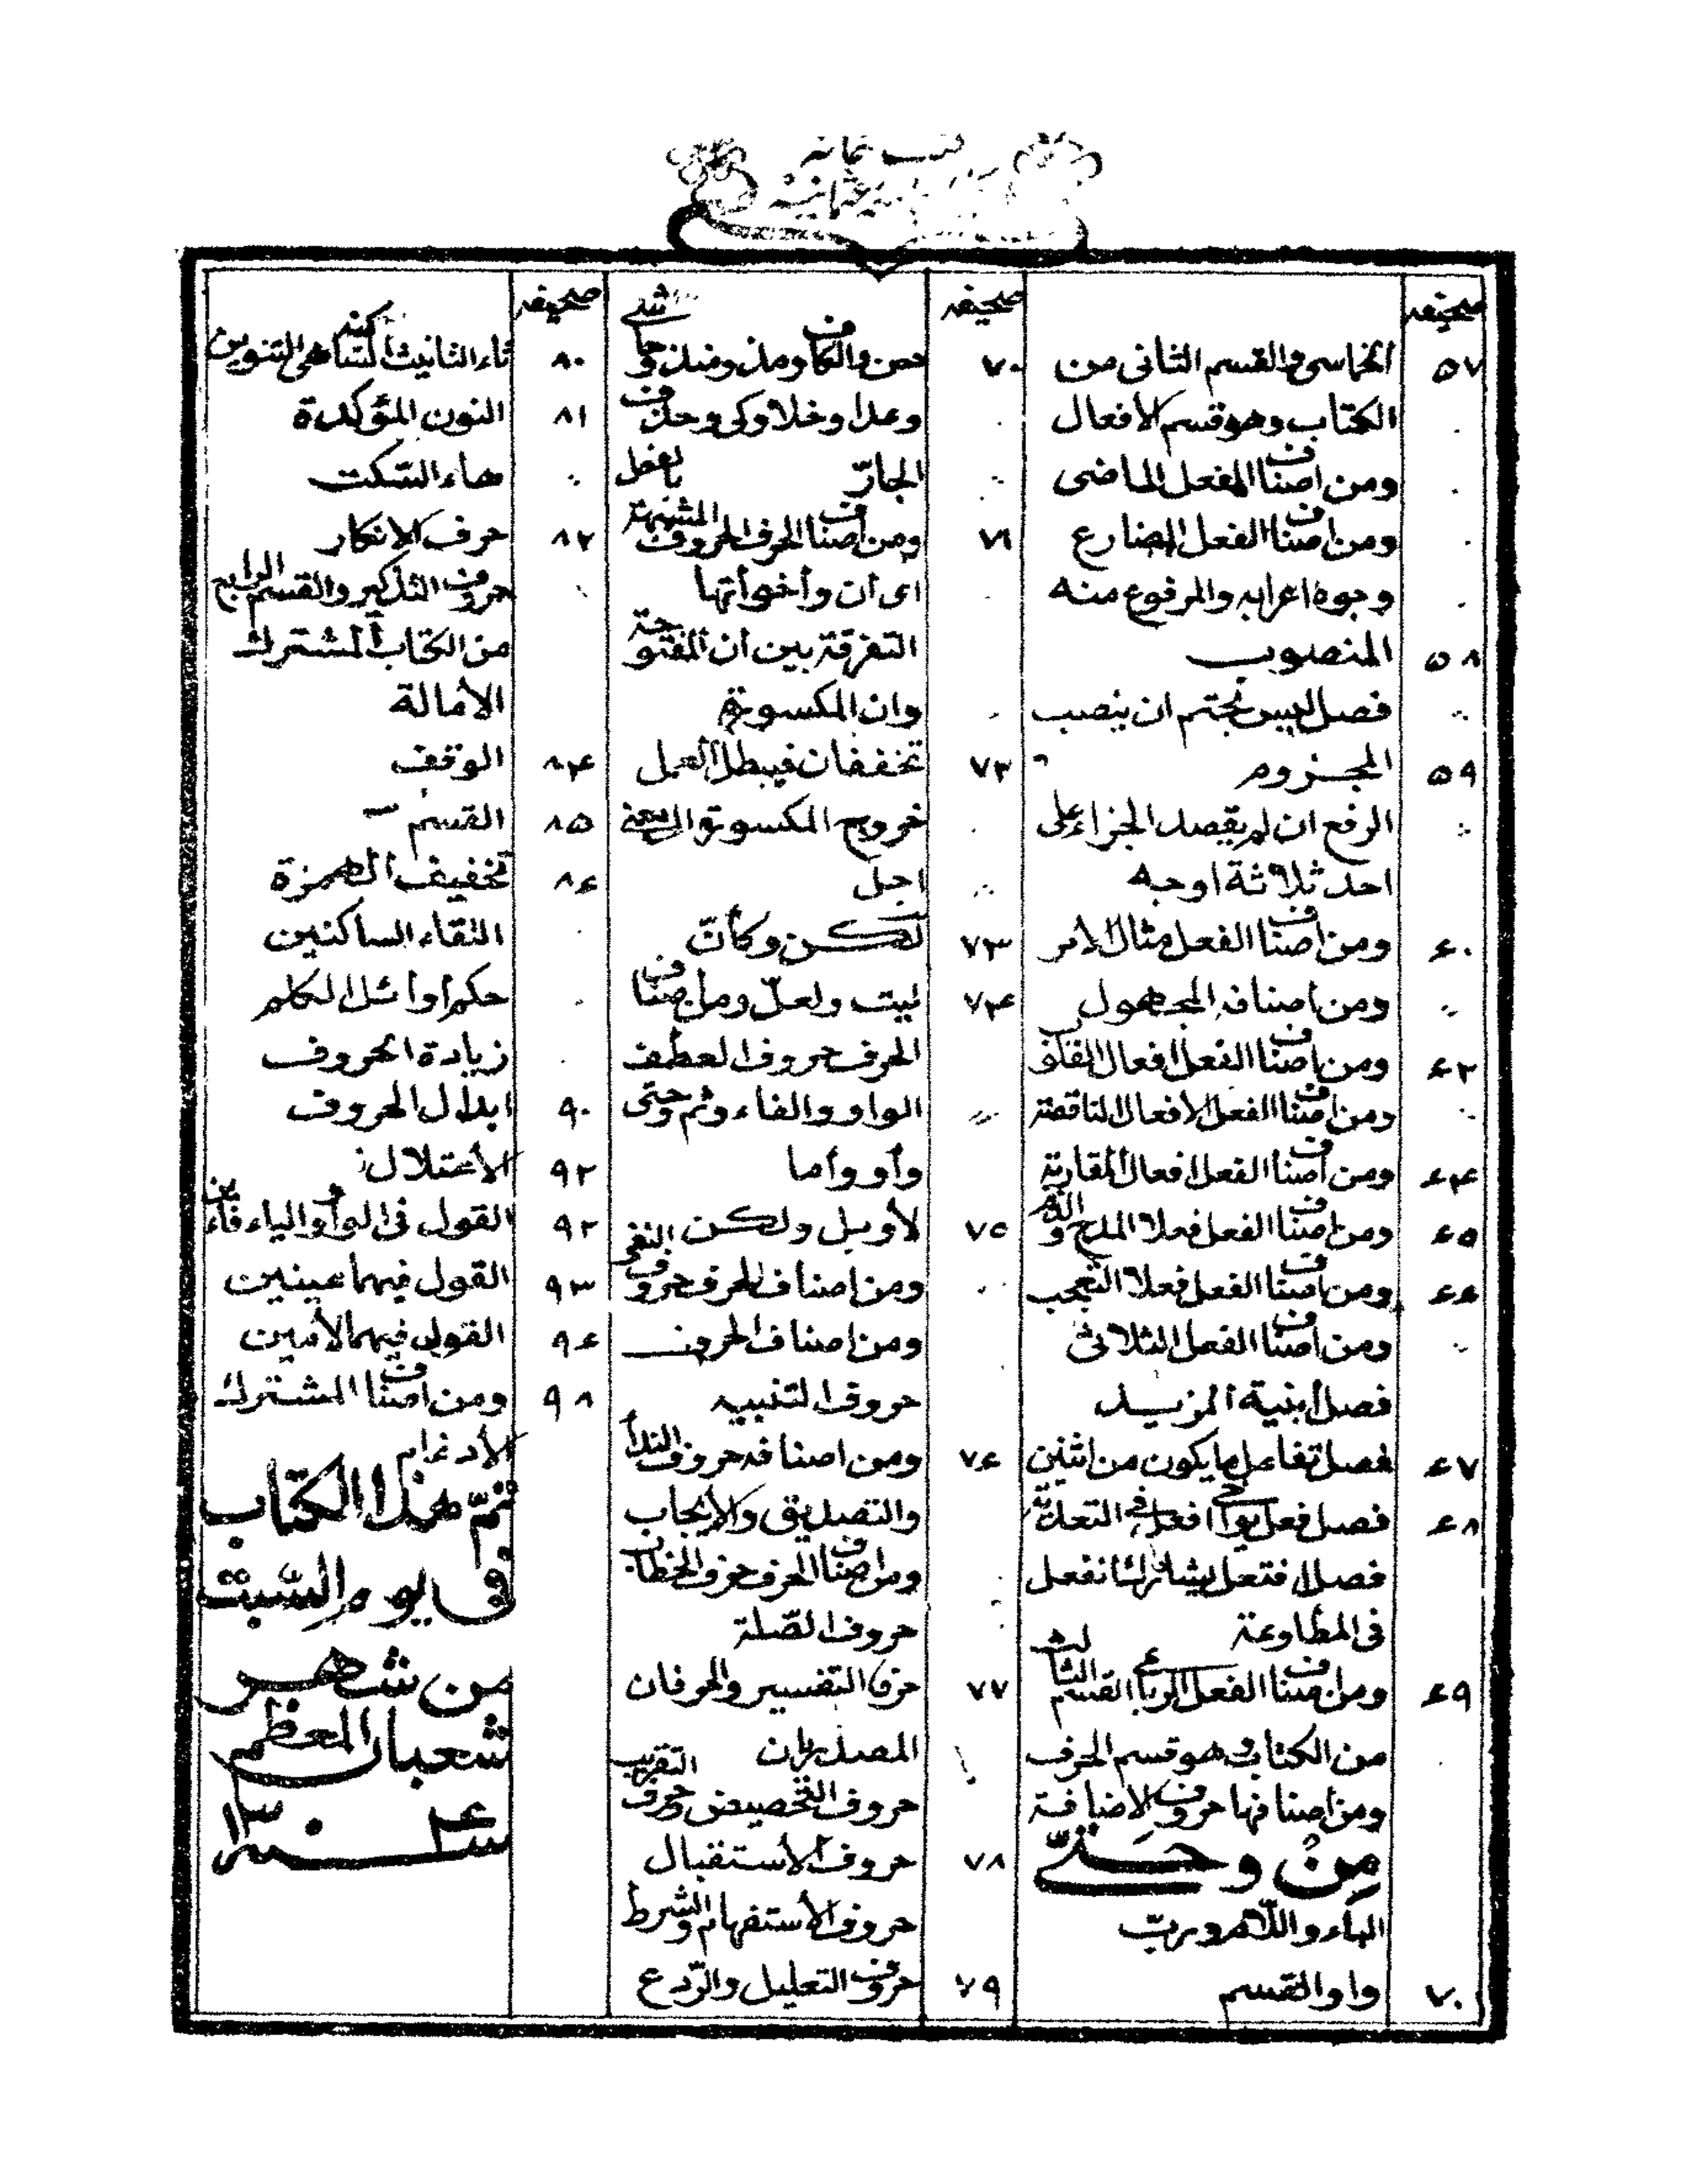 صحيفه
٥٧ الخماسى والقسم الثانى من
الكتاب وهو قسم الأفعال
ومن اصناف الفعل الماضى
ومن اصناف الفعل المضارع
وجوه اعرابه والمرفوع منه
٥٨ المنصوب
فصل ليس بحتم ان ينصب
٥٩ المجزوم
الرفع ان لم يقصد الجزاء على
احد ثلاثة اوجه
٦٠ ومن اصناف الفعل مثال الامر
ومن اصنافه المجهول
٦٢ ومن اصناف الفعل افعال القلوب
ومن اصناف الفعل الأفعال الناقصة
٦٤ ومن اصناف الفعل افعال المقاربة
٦٥ ومن اصناف الفعل فعلا المدح والذم
٦٦ ومن اصناف الفعل فعلا التعجب
ومن اصناف الفعل الثلاثى
فصل أبنية المزيد
٦٧ فصل تفاعل ما يكون من اثنين
٦٨ فصل فعل يواخى افعل فى التعدية
فصل افتعل يشارك انفعل
فى المطاوعة
٦٩ ومن اصناف الفعل الرباعى القسم الثالث
من الكتاب وهو قسم الحرف
ومن اصنافها حروف الاضافة
مِنْ وحتّى
الباء واللّام وربّ
٧٠ واو القسم
صحيفه
٧٠ عن والكاف ومذ ومنذ وحاشى
وعدا وخلا وكى وحذف
الجارّ
٧١ ومن اصناف الحرف الحروف المشبهة بالفعل
اى ان وأخواتها
التفرقة بين ان المفتوحة
وان المكسورة
٧٢ تخففان فيبطل العمل
خروج المكسورة الى معنى
اجل
٧٣ لكن وكأنّ
٧٤ ليت ولعلّ ومن اصناف
الحرف حروف العطف
الواو والفاء وثم وحتى
وأو وأما
٧٥ لا وبل ولكن
ومن اصناف الحرف حروف النفى
ومن اصناف الحروف
حروف التنبيه
٧٦ ومن اصنافه حروف الندأ
والتصديق والأيجاب
ومن اصناف الحرف حرف الخطاب
حروف الصّلة
٧٧ حرفا التفسير والحرفان
المصدريان
حروف التحضيض وحرف التقريب
٧٨ حروف الأستقبال
حروف الأستفهام والشرط
٧٩ حروف التعليل والرّدع
صحيفه
٨٠ تاء التانيث الساكنة هى التنوين
٨١ النون المؤكدة
هاء السّكت
٨٢ حرف الانكار
حروف التذكير والقسم الرابع
من الكتاب المشترك
الأمالة
٨٤ الوقف
٨٥ القسم
٨٦ تخفيف الهمزة
التقاء الساكنين
حكم أوائل الكلم
زيادة الحروف
٩٠ ابدال الحروف
٩٢ الأعتلال
٩٢ القول فى الواو والياء فاءين
٩٣ القول فيهما عينين
٩٦ القول فيهما لأمين
٩٨ ومن اصناف المشترك
الأدغام
تمّ هذا الكتاب
فى يوم السّبت
من شهر
شعبان المعظم